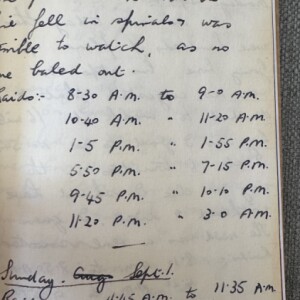 fell in spirals & was
to watch, as no
baled out.
raids:- 8-30 A.M. to 9-0 A.M.
10-40 A.M. " 11-20 A.M.
1-5 P.M. " 1-55 P.M.
5-50 P.M. " 7-15 P.M.
9-45 P.M. " 10-10 P.M.
11.20 P.M. " 3-0 A.M.
Sunday. Aug Sept. 1.
11.15 A.M. to 11.35 A.M.